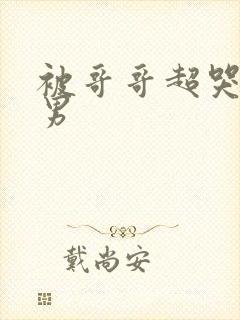 被哥哥超哭
男
戴尚安